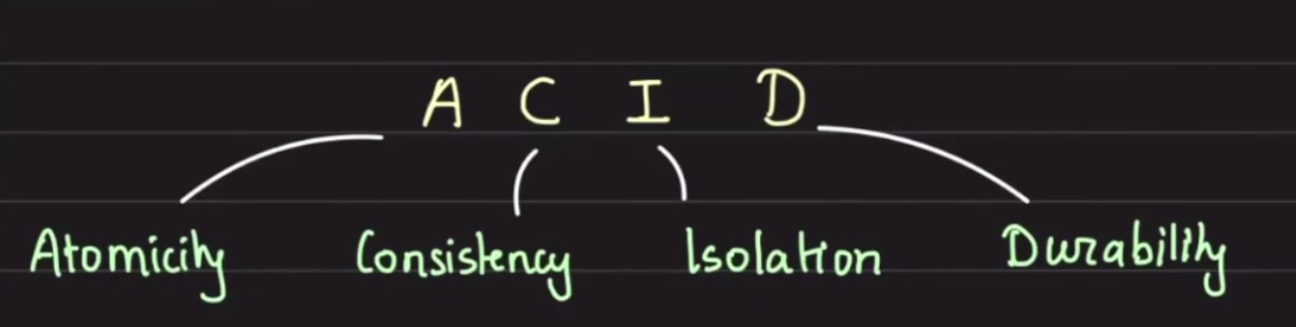 A C I D
Atomicity Consistency Isolation Durability